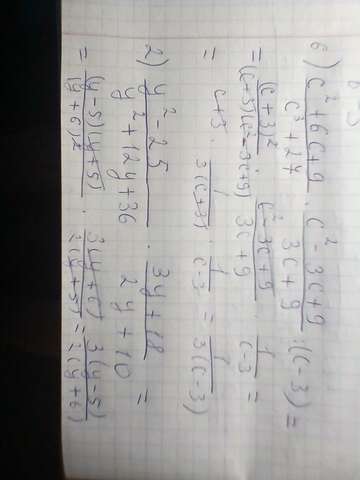 б) c² + 6c + 9 / c³ + 27 · c² - 3c + 9 / 3c + 9 : (c - 3) =
= (c + 3)² / (c + 3)(c² - 3c + 9) · c² - 3c + 9 / 3c + 9 · 1 / c - 3 =
= c + 3 · 1 / 3(c + 3) · 1 / c - 3 = 1 / 3(c - 3)
2) y² - 25 / y² + 12y + 36 · 3y + 18 / 2y + 10 =
= (y - 5)(y + 5) / (y + 6)² · 3(y + 6) / 2(y + 5) = 3(y - 5) / 2(y + 6)